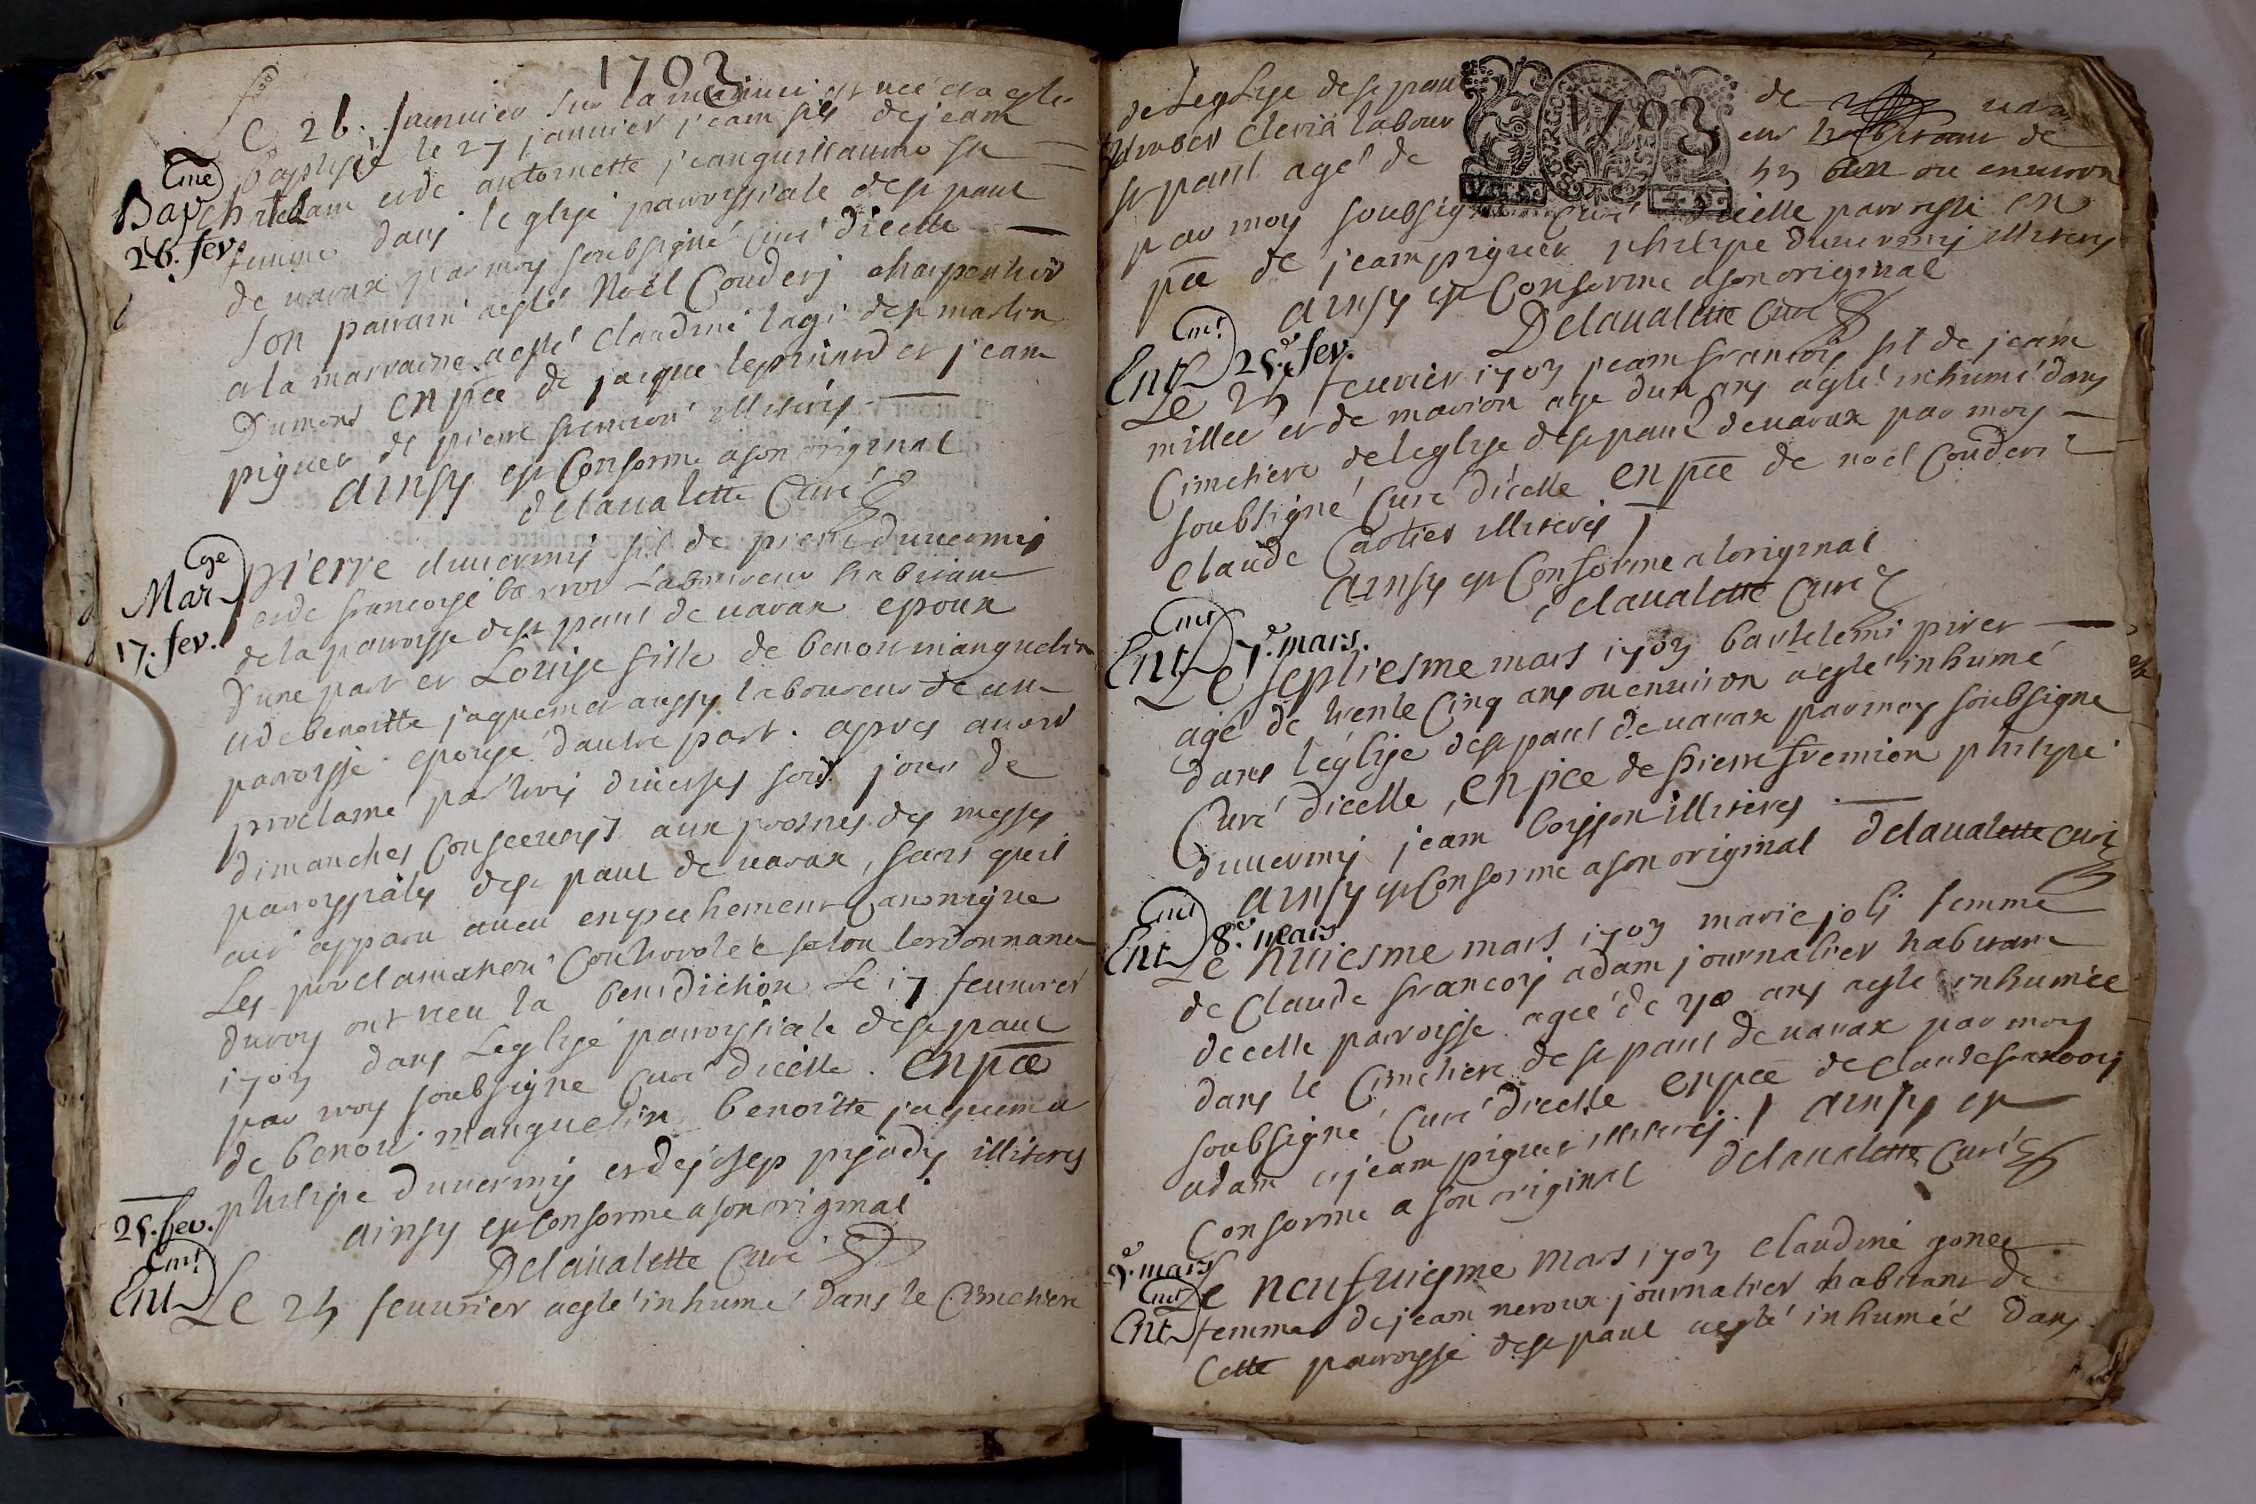 1703
Le 26. Januier sur la minuit est née et a esté
baptisé le 27 januier jean fils de jean
Cme
Bap chatelain et de antoinette jeanguillaume sa
26. fev. femme dans leglise parroissiale de st paul
de uarax par moy soubsigné Curé dicelle
son parrain aesté Noël Couderj charpentier
a la marraine aesté Claudine lagi de st martin
Dumont en pce de jacque lepinard et jean
piguet de pierre fremion illiterés
ainsy est Conforme a son original
delaualette Curé
Cge
Mar pierre duuernnis fil de pierre duuernnis
17. fev. et de francoise barror Laboureur habitant
de la parroisse de st paul de uarax epoux
Dune part et Louise fille de benoit manguelin
et de benoitte jaquemet aussy laboureur de une
parroisse epouse dautre part. apres auoir
proclamé par trois diuerses fois jours de
dimanches Consecutifs aux prosnes des messes
parroissiales de st paul de uarax, sans quil
aie apparu aucu empechement Canonique
Les proclamation Controlée selon lordonnance
du roy ont receu la benediction Le 17 feuurier
1703 dans Leglise parroissiale de st paul
par moy soubsigne Curé dicelle. en pce
de benoit manguelin benoitte jaquemet
philipe duuernnis et de josep pijody illiterés
ainsy est Conforme a son original
25. fev. Delaualette Curé
Cmt
Ent Le 25 feuurier aesté inhumé dans le Cimetiere
de Leglise de st paul de uarax
Cleria labour eur habitant de
st paul agé de 55 ans ou enuiron
par moy soubsigné Curé dicelle parroisse en
pce de jean piguet philipe duuernnis illiterés
ainsy est Conforme a son original
Delaualette Curé
Cmt
Ent 25.e fev.
Le 25 feuurier 1703 jean francois fil de jean
millet et de marion age dun ans aesté inhumé dans
Cimetiere de leglise de st paul de uarax par moy
soubsigné Curé dicelle en pce de noel Couderi
Claude Cartier illiterés
ainsy est Conforme a loriginal
delaualette Curé
Cmt
Ent 7.e mars.
Le septiesme mars 1703 bartelemi piret
agé de trente Cinq ans ou enuiron aesté inhumé
dans léglise de st paul de uarax par moy soubsigne
Curé dicelle, en pce de pierre fremion philipe
duuernnis jean boisson illiterés
ainsy est Conforme a son original Delaualette Curé
Cmt
Ent 8.e mars
Le huiesme mars 1703 marie joli femme
de Claude francois adam journalier habitant
de cette parroisse agée de 70 ans aesté inhumée
dans le Cimetiere de st paul de uarax par moy
soubsigné Curé dicelle en pce de Claude francois
adam et jean piguet illiterés. ainsy est
Conforme a son original Delaualette Curé
9.e mars
Cmt
Ent Le neufuiesme mars 1703 Claudine gonet
femme de jean neroux journalier habitant de
Cette parroisse de st paul aesté inhumée dans